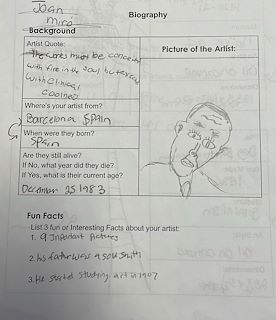 Joan
miró
Biography
Background
Artist Quote:
The works must be conceived
with fire in the soul but executed
with clinical
coolness
Picture of the Artist:
Where's your artist from?
Barcelona Spain
When were they born?
Spain
Are they still alive?
If No, what year did they die?
If Yes, what is their current age?
December 25 1983
Fun Facts
List 3 fun or Interesting Facts about your artist:
1. 9 Important Pictures
2. his father was a
3. He started studying art in 1907